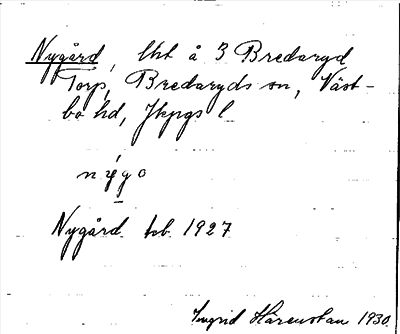 Nygård, lht å 3 Bredaryd
Torp, Bredaryds sn, Väst-
bo hd, Jkpgs l
nýgo
Nygård. tcb. 1927
Ingrid Härenstam 1930.